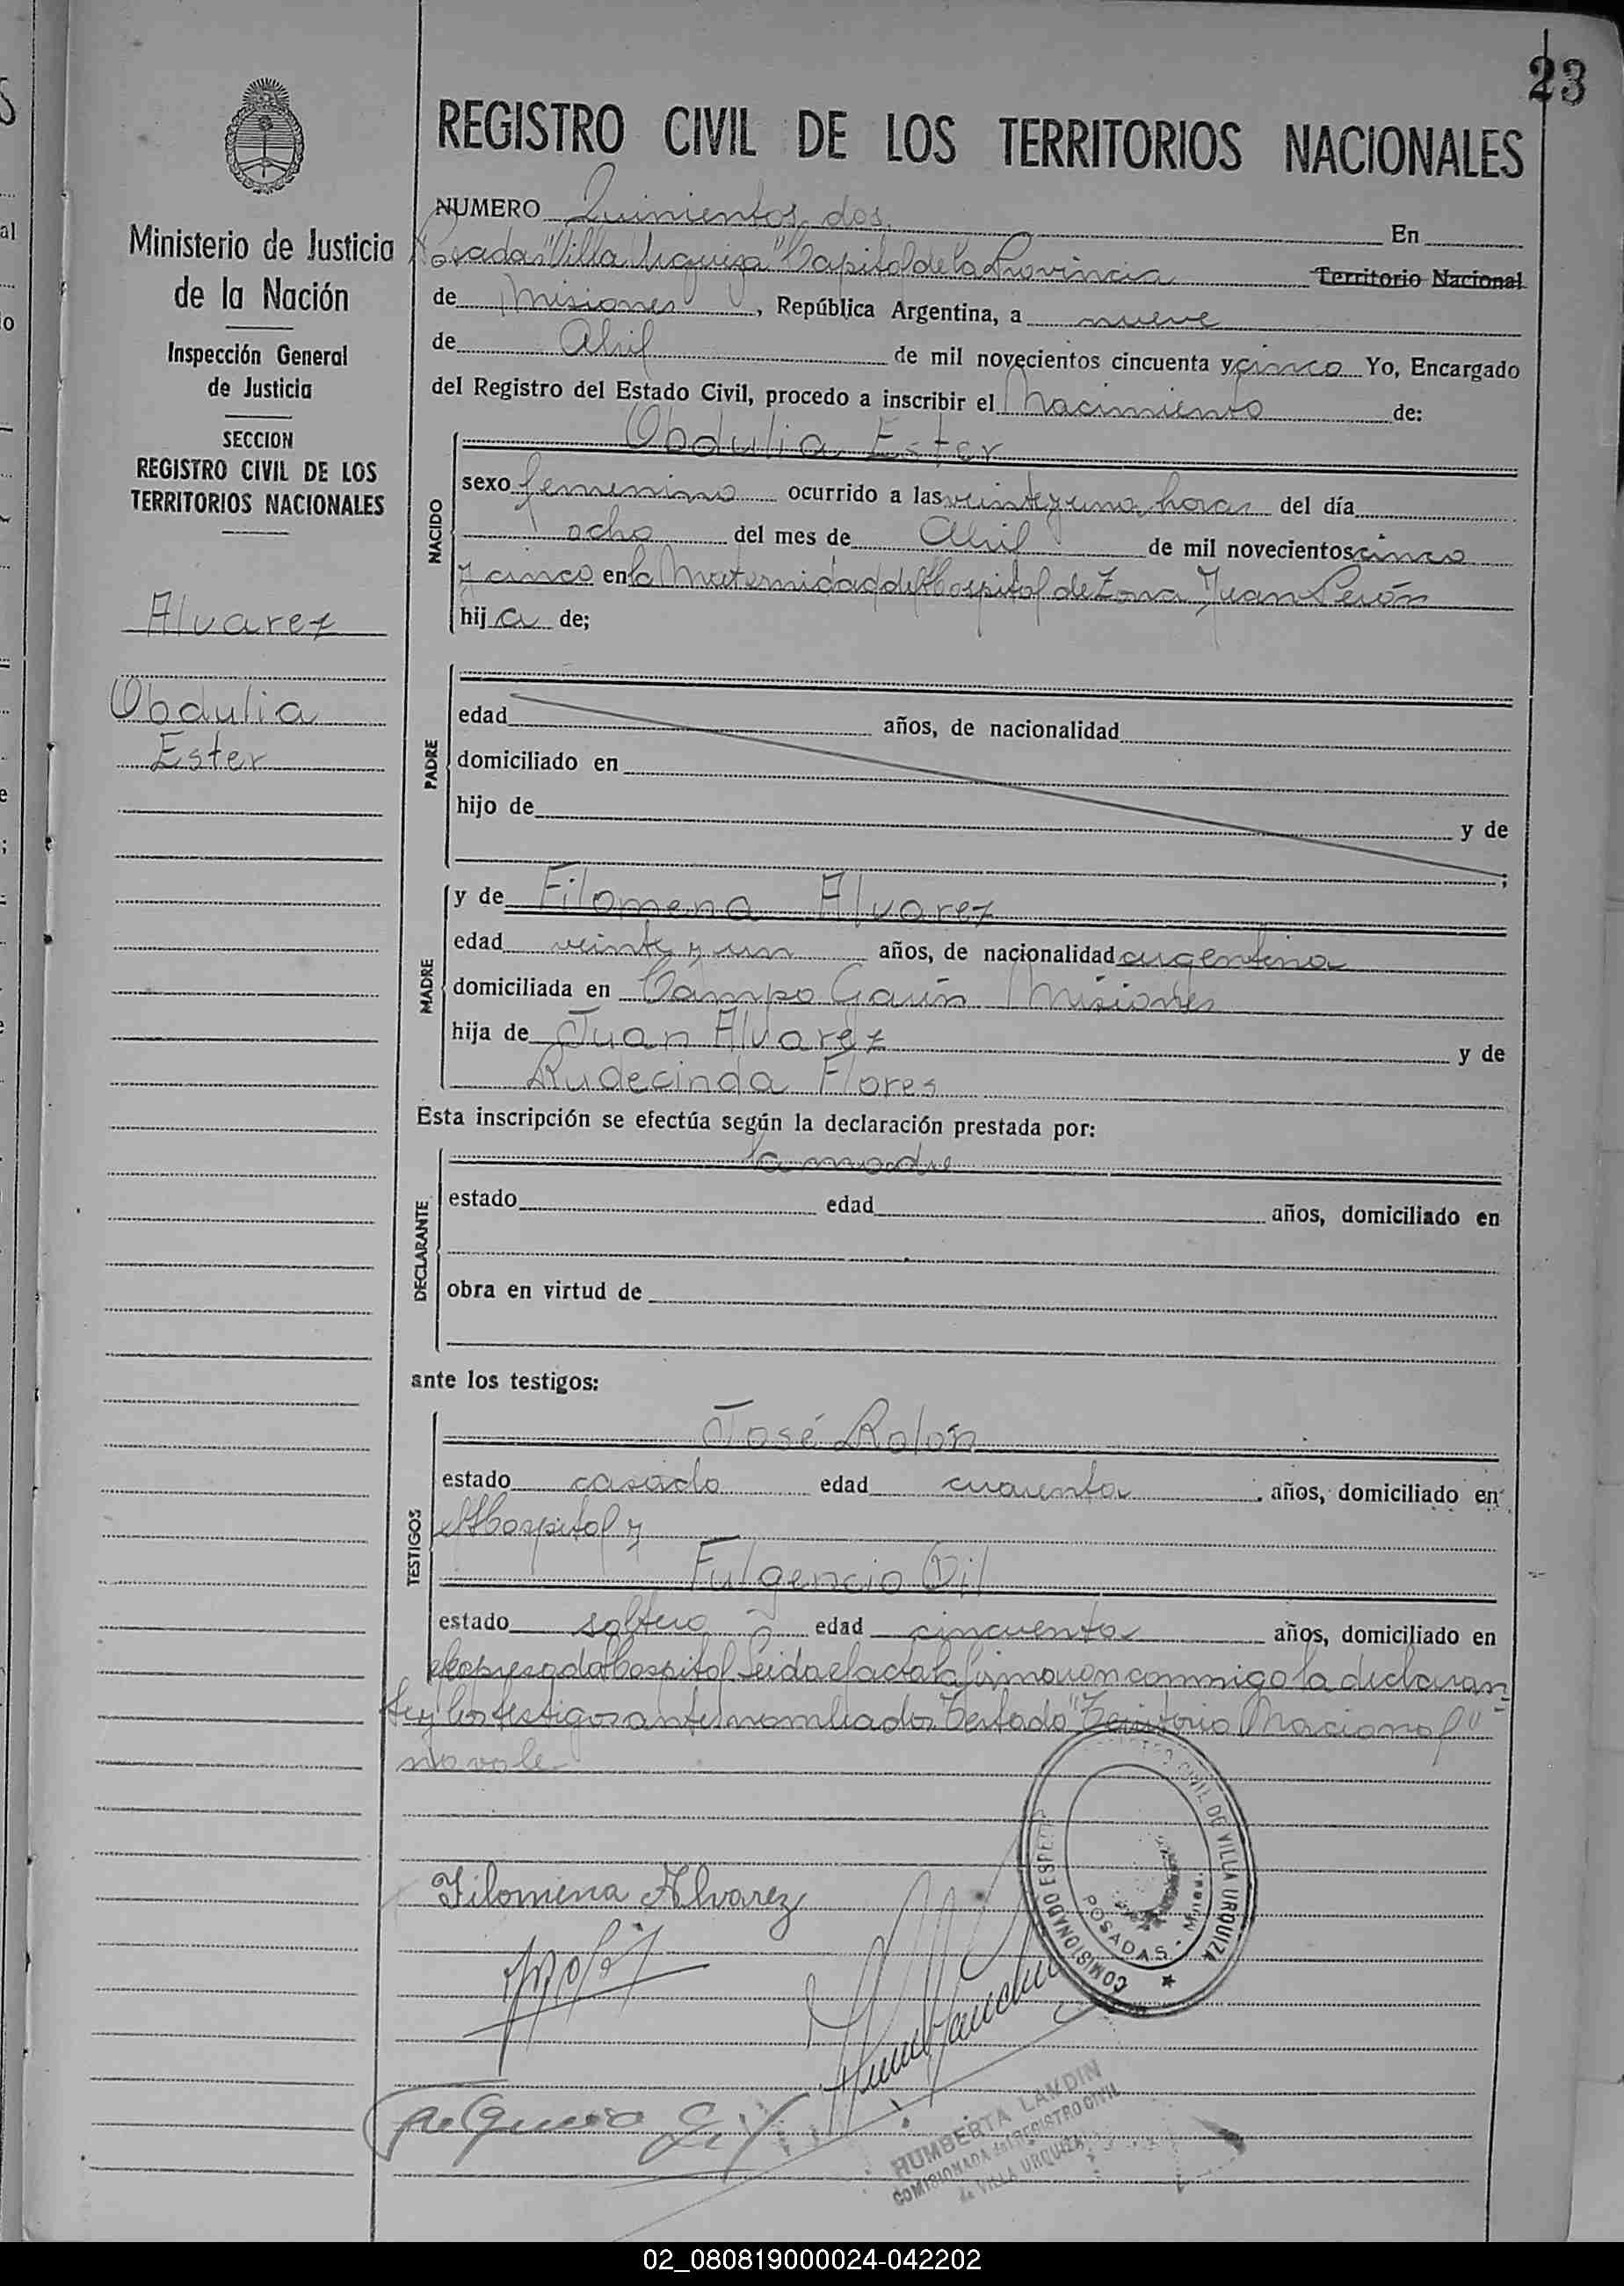 23
REGISTRO CIVIL DE LOS TERRITORIOS NACIONALES
Ministerio de Justicia
de la Nación
Inspección General
de Justicia
SECCION
REGISTRO CIVIL DE LOS
TERRITORIOS NACIONALES
Alvarez
Obdulia
Ester
NUMERO Quinientos dos. En
Posadas "Villa Urquiza" Capital de la Provincia Territorio Nacional
de Misiones, República Argentina, a nueve
de Abril de mil novecientos cincuenta y cinco Yo, Encargado
del Registro del Estado Civil, procedo a inscribir el Nacimiento de:
NACIDO
Obdulia Ester
sexo femenino ocurrido a las veinte y una horas del día
ocho del mes de Abril de mil novecientos cinco
y cinco en la Maternidad del Hospital de Zona Juan Perón
hij a de;
PADRE
edad años, de nacionalidad
domiciliado en
hijo de y de
;
MADRE
y de Filomena Alvarez
edad veinte y un años, de nacionalidad argentina
domiciliada en Campo Misiones
hija de Juan Alvarez y de
Rudecinda Flores
Esta inscripción se efectúa según la declaración prestada por:
DECLARANTE
la madre
estado edad años, domiciliado en
obra en virtud de
ante los testigos:
TESTIGOS
José Rolón
estado casado edad cuarenta años, domiciliado en
el Hospital y
Fulgencio Gil
estado soltero edad cincuenta años, domiciliado en
el expresado Hospital Leida el acta la firmaron conmigo la declaran-
te y los testigos antes nombrados Testado "Territorio Nacional"
no vale
Filomena Alvarez
REGISTRO CIVIL DE VILLA URQUIZA
COMISIONADO
POSADAS - Mnes.
HUMBERTA LANDIN
COMISIONADA del REGISTRO CIVIL
de VILLA URQUIZA
02_080819000024-042202